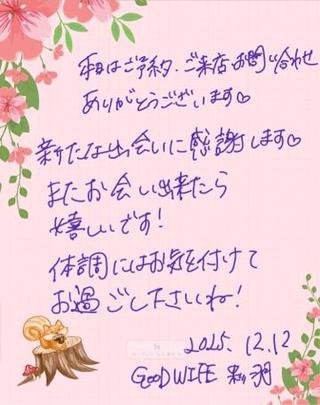 本日はご予約、ご来店、お問い合わせ
ありがとうございます♡
新たな出会いに感謝します♡
またお会い出来たら
嬉しいです!
体調にはお気を付けて
お過ごし下さいね!
2025.12.12
GOOD WIFE